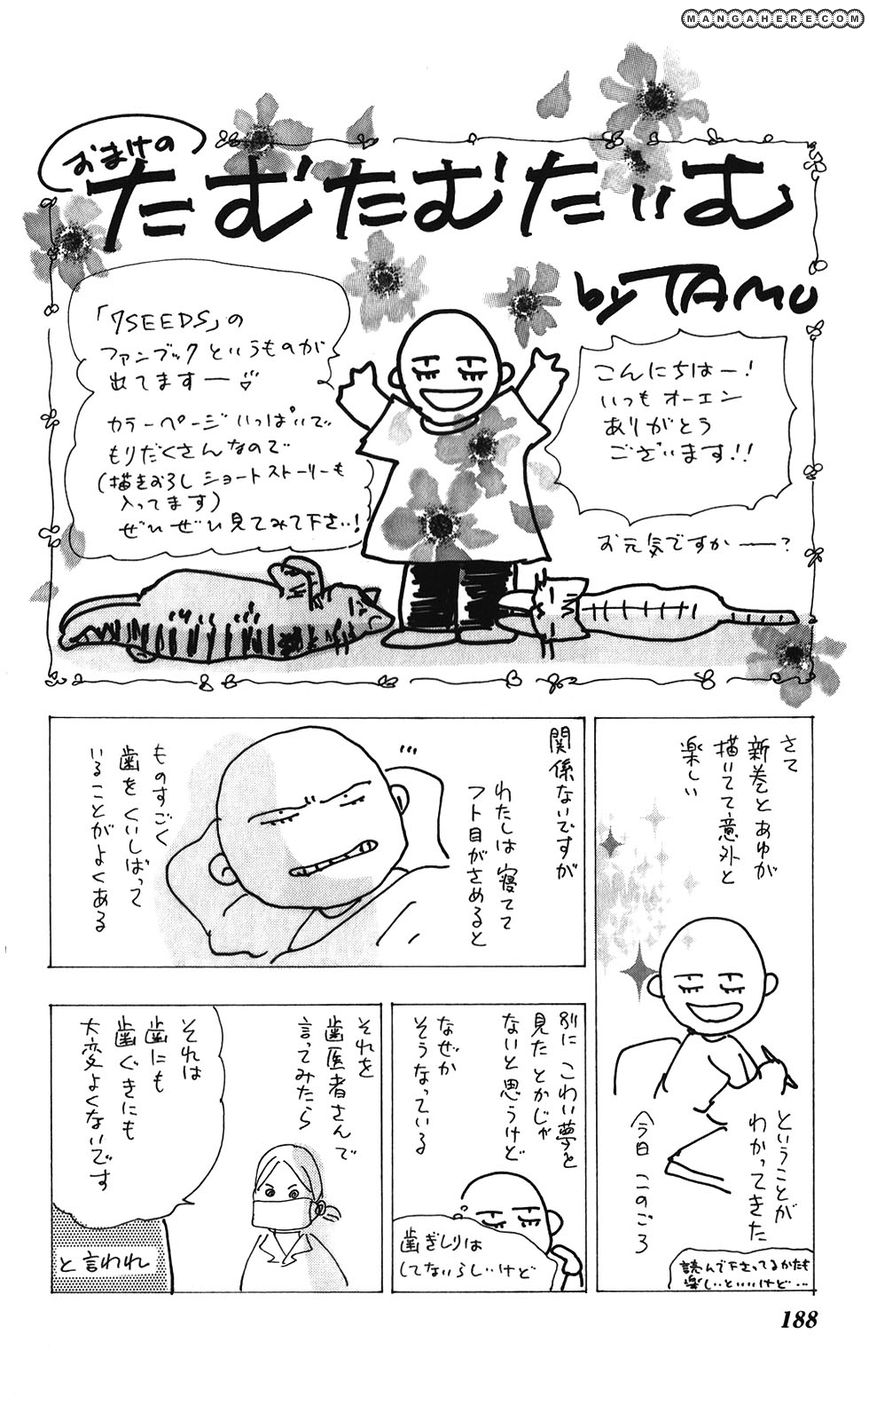 MANGAHERE.COM
おまけの
たむたむたいむ
by TAMU
こんにちはー!
いつもオーエン
ありがとう
ございます!!
お元気ですかー?
「7SEEDS」の
ファンブックというものが
出てますー♡
カラーページいっぱいで
もりだくさんなので
(描きおろしショートストーリーも
入ってます)
ぜひぜひ見てみて下さい!
さて
新巻とあゆが
描いてて意外と
楽しい
ということが
わかってきた
今日このごろ
読んで下さってるかたも
楽しいといいけど…
関係ないですが
わたしは寝てて
フト目がさめると
ものすごく
歯をくいしばって
いることがよくある
別にこわい夢を
見たとかじゃ
ないと思うけど
なぜか
そうなっている
歯ぎしりは
してないらしいけど
それを
歯医者さんで
言ってみたら
それは
歯にも
歯ぐきにも
大変よくないです
と言われ
188